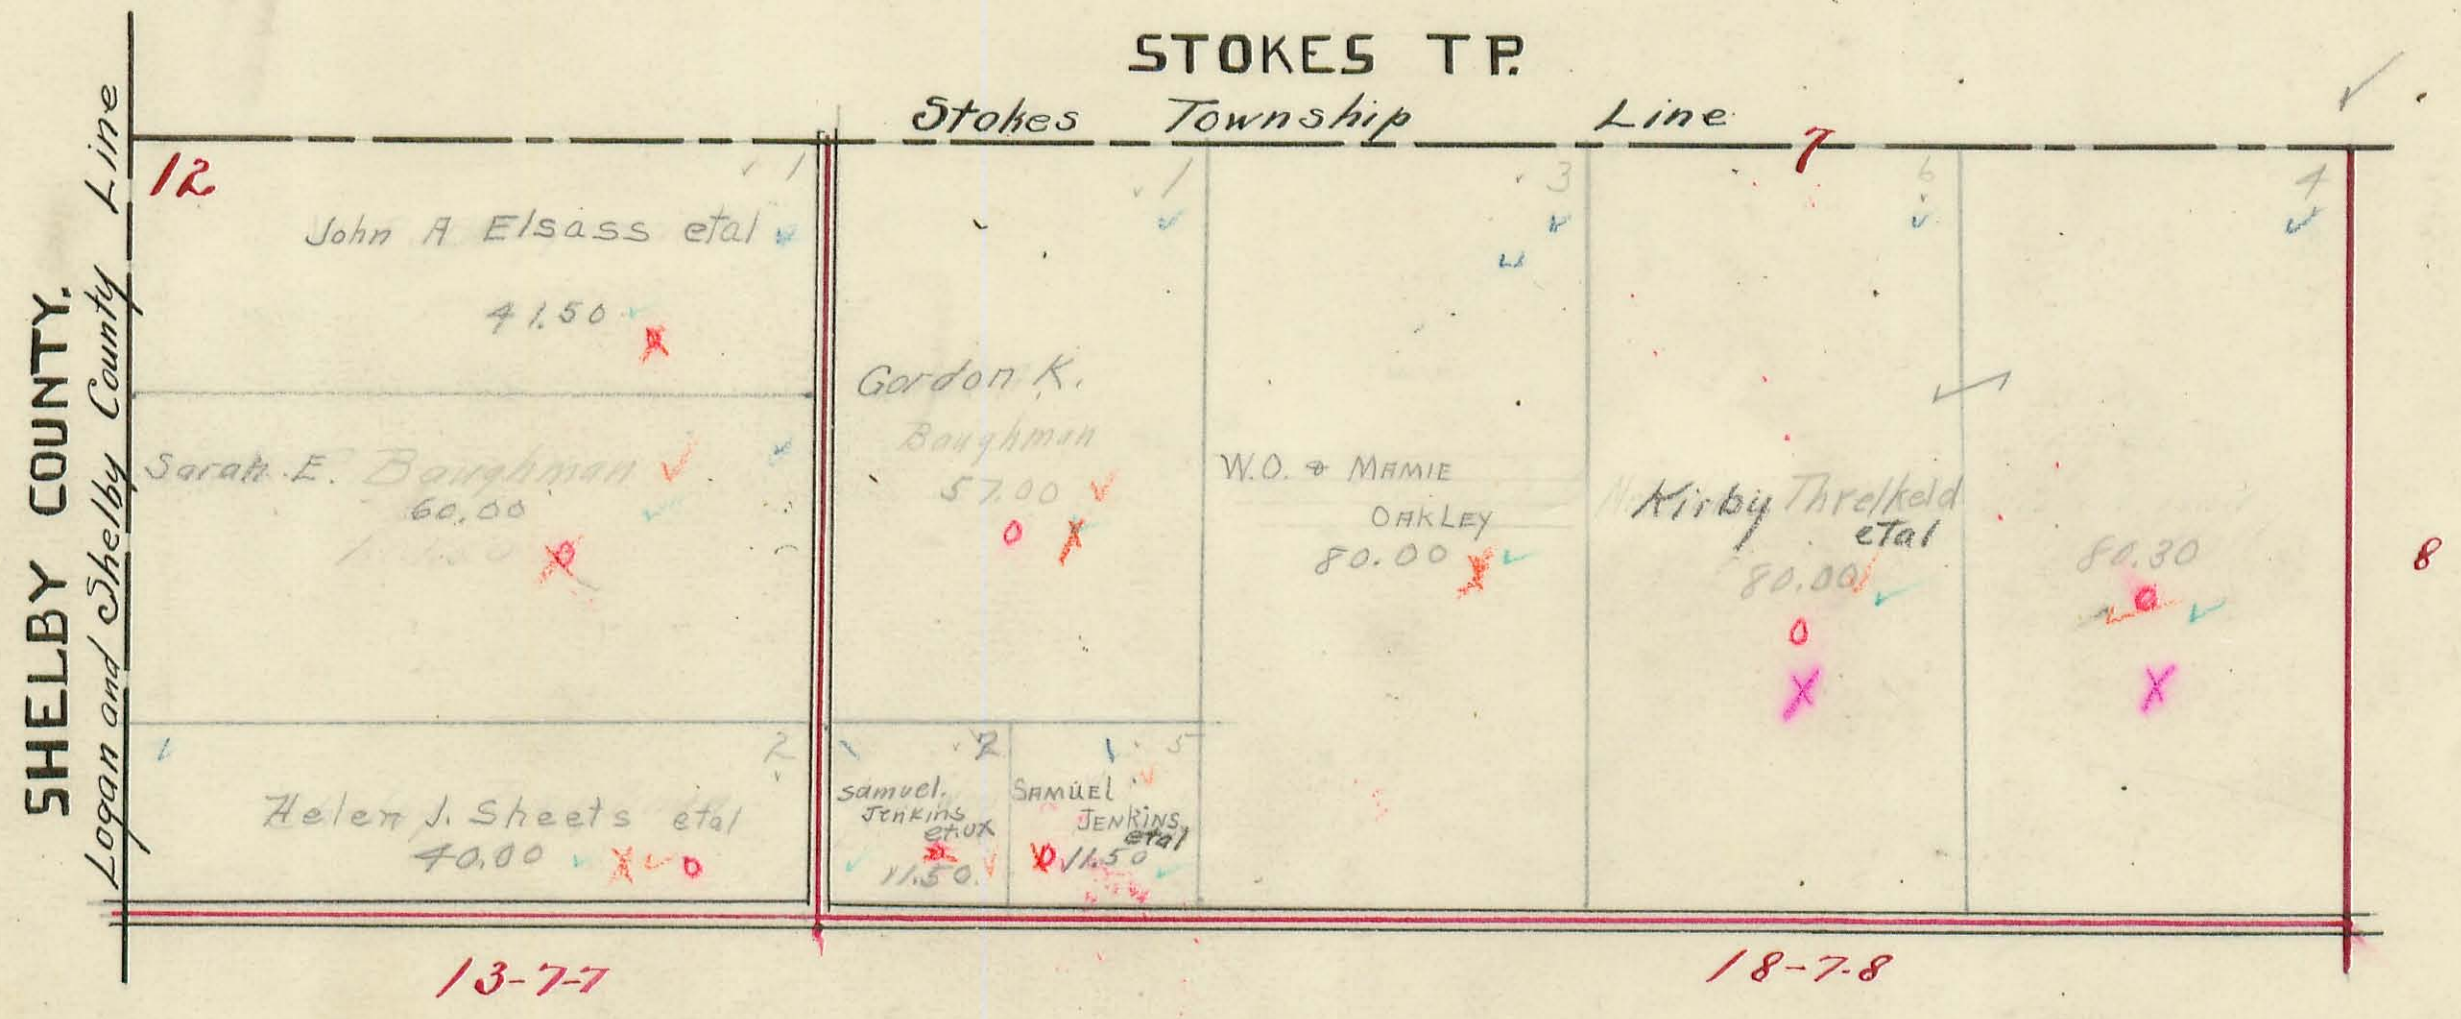 STOKES TP.
Stokes Township Line
SHELBY COUNTY.
Logan and Shelby County Line
12
1
John A Elsass etal
41.50
Sarah E. Baughman
60.00
2
Helen J. Sheets etal
40.00
7
1
Gordon K.
Baughman
57.00
2
Samuel.
Jenkins
et.ux
11.50
5
SAMUEL
JENKINS
etal
11.50
3
W.O. & MAMIE
OAKLEY
80.00
6
Kirby Threlkeld
etal
80.00
4
80.30
8
13-7-7
18-7-8